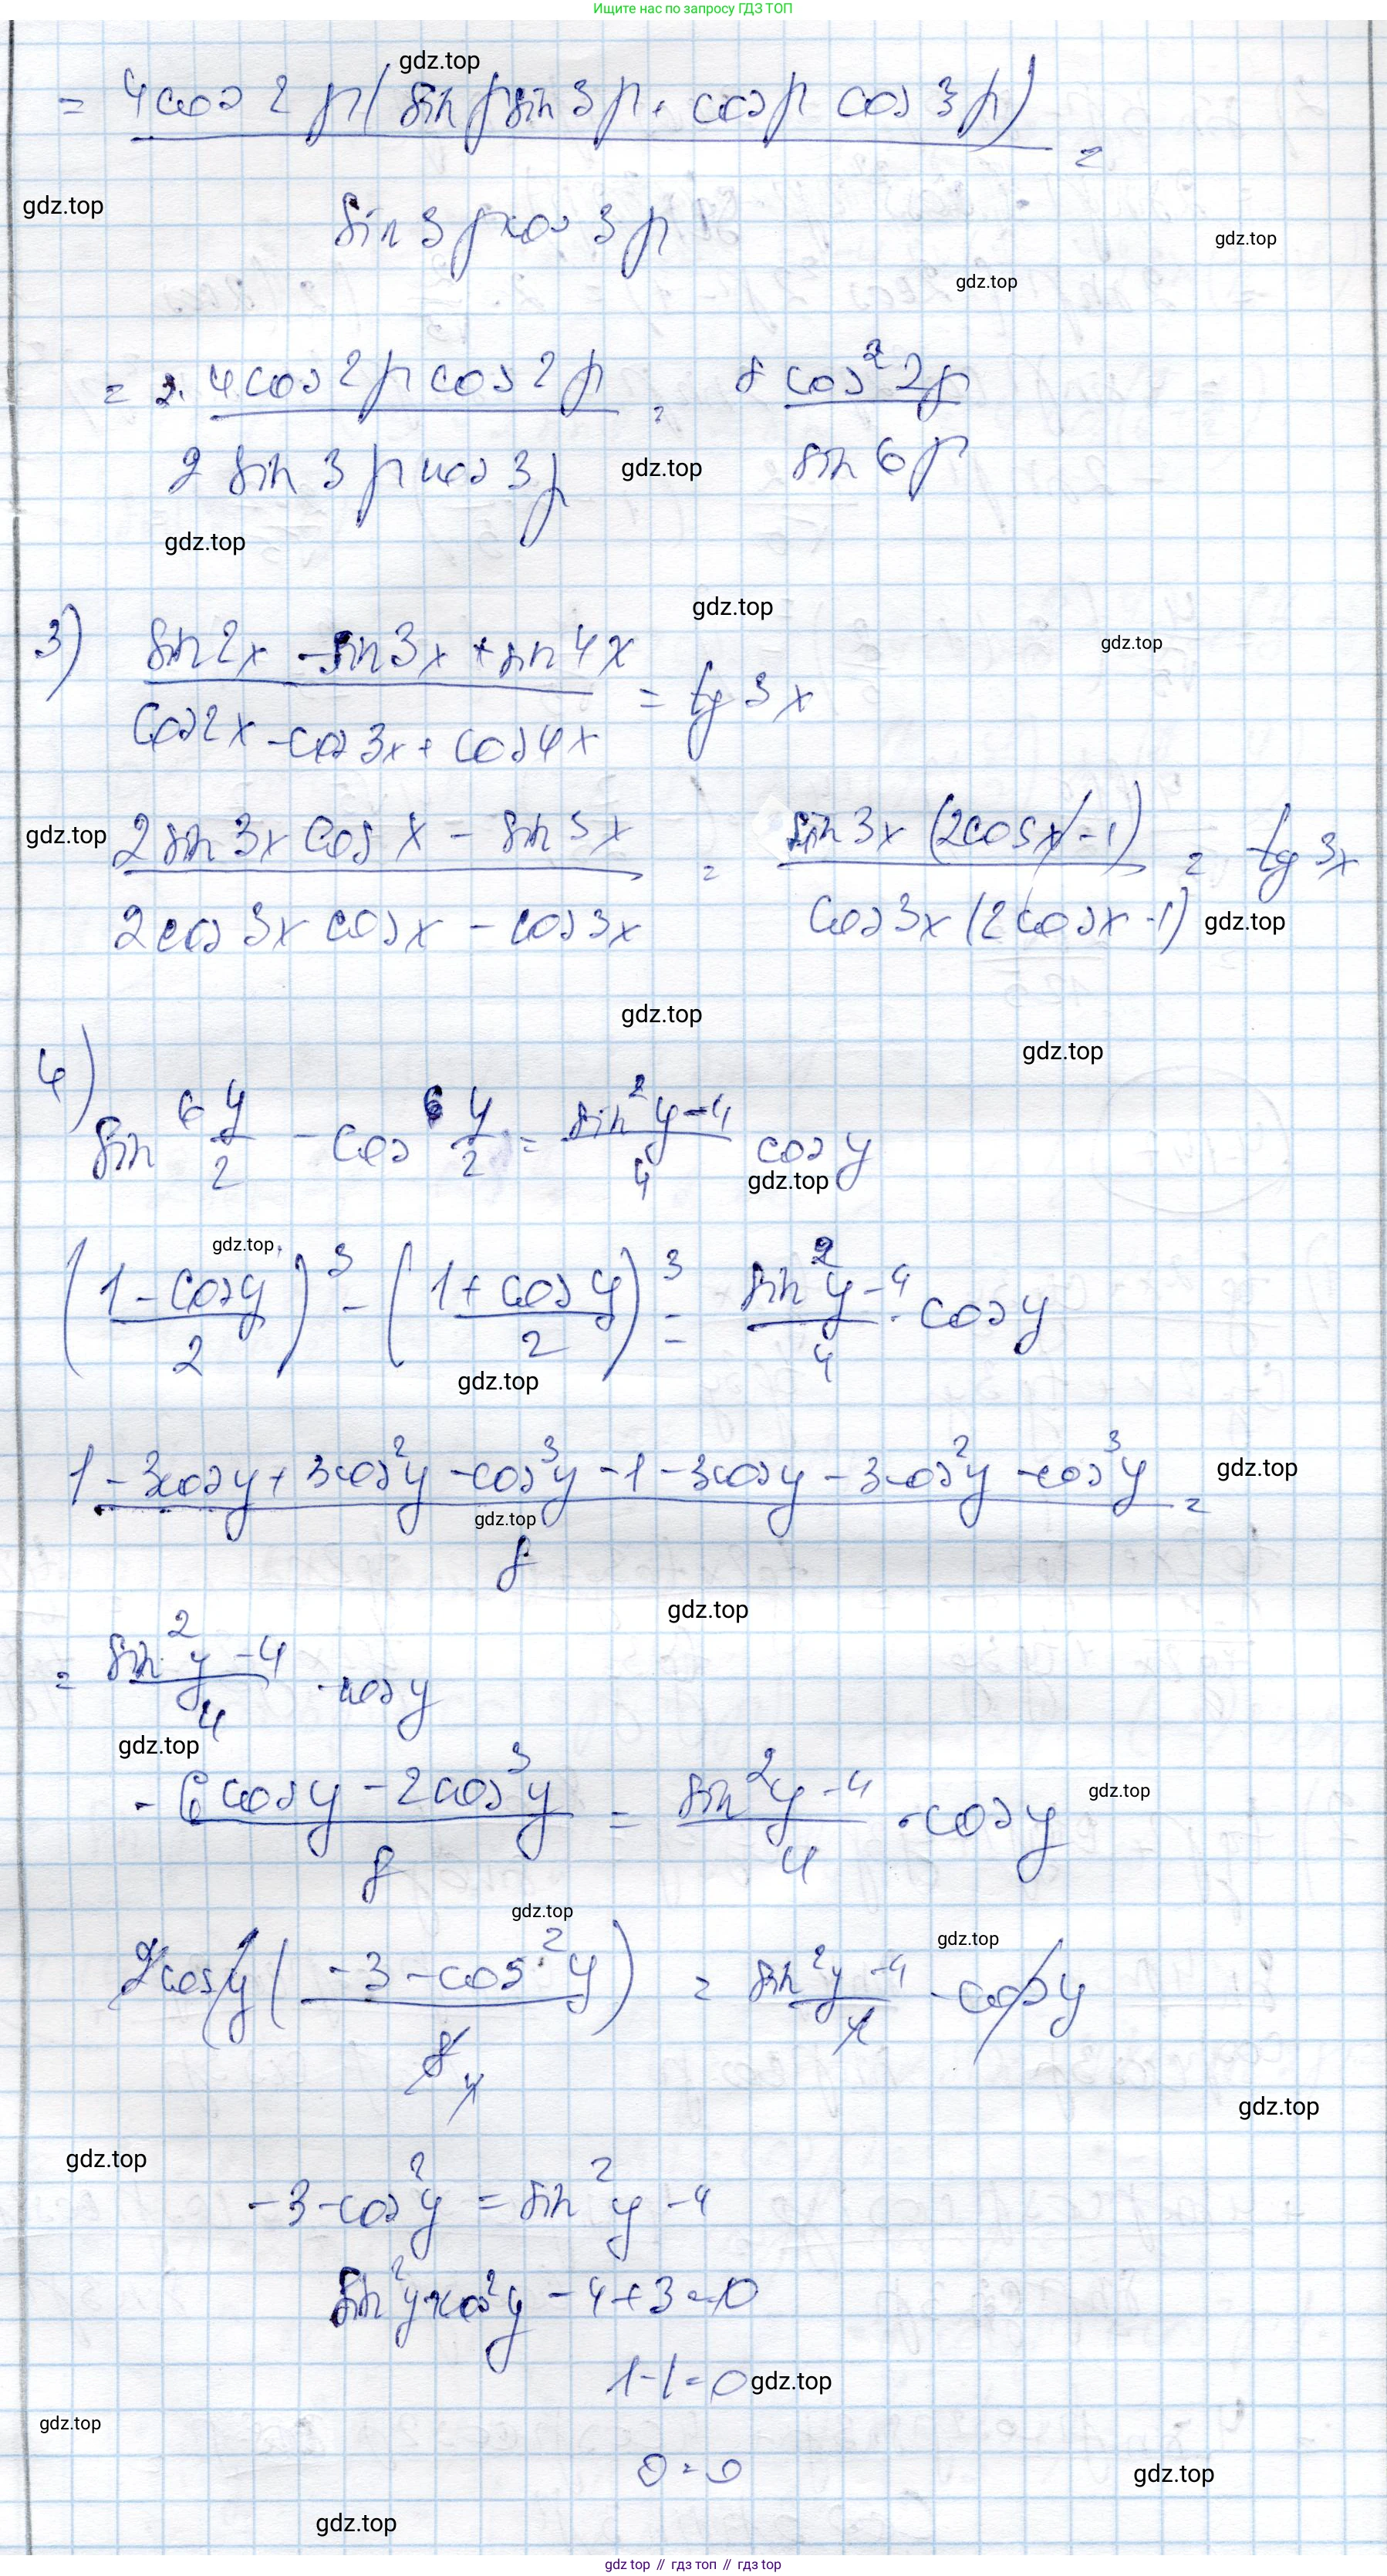 Ищите нас по запросу ГДЗ ТОП
gdz.top
= 4cos 2β(sinβ sin 3β + cosβ cos 3β) =
gdz.top
sin 3β cos 3β
gdz.top
gdz.top
= 2· 4cos 2β cos 2β = 8 cos² 2β
2 sin 3β cos 3β gdz.top sin 6β
gdz.top
gdz.top
3) sin2x - sin3x + sin4x = tg 3x
gdz.top
cos2x - cos3x + cos4x
gdz.top 2 sin 3x cos x - sin 3x = sin 3x (2cosx - 1) = tg 3x
2cos 3x cosx - cos3x cos3x (2cosx - 1) gdz.top
gdz.top
gdz.top
4)
sin⁶ y/2 - cos⁶ y/2 = sin²y - 4 / 4 cos y
gdz.top
gdz.top
(1 - cosy / 2)³ - (1 + cos y / 2)³ = sin²y - 4 / 4 · cosy
gdz.top
1 - 3cosy + 3cos²y - cos³y - 1 - 3cosy - 3cos²y - cos³y = gdz.top
gdz.top
8
gdz.top
= sin²y - 4 / 4 · cosy
gdz.top
- 6cosy - 2cos³y / 8 = sin²y - 4 / 4 · cosy
gdz.top
gdz.top
2cosy( -3 - cos²y / 8 4 ) = sin²y - 4 / 4 · cosy
gdz.top
gdz.top
gdz.top
-3 - cos²y = sin²y - 4
sin²y + cos²y - 4 + 3 = 0
1 - 1 = 0 gdz.top
gdz.top
0 = 0
gdz.top
gdz.top
gdz top // гдз топ // гдз top